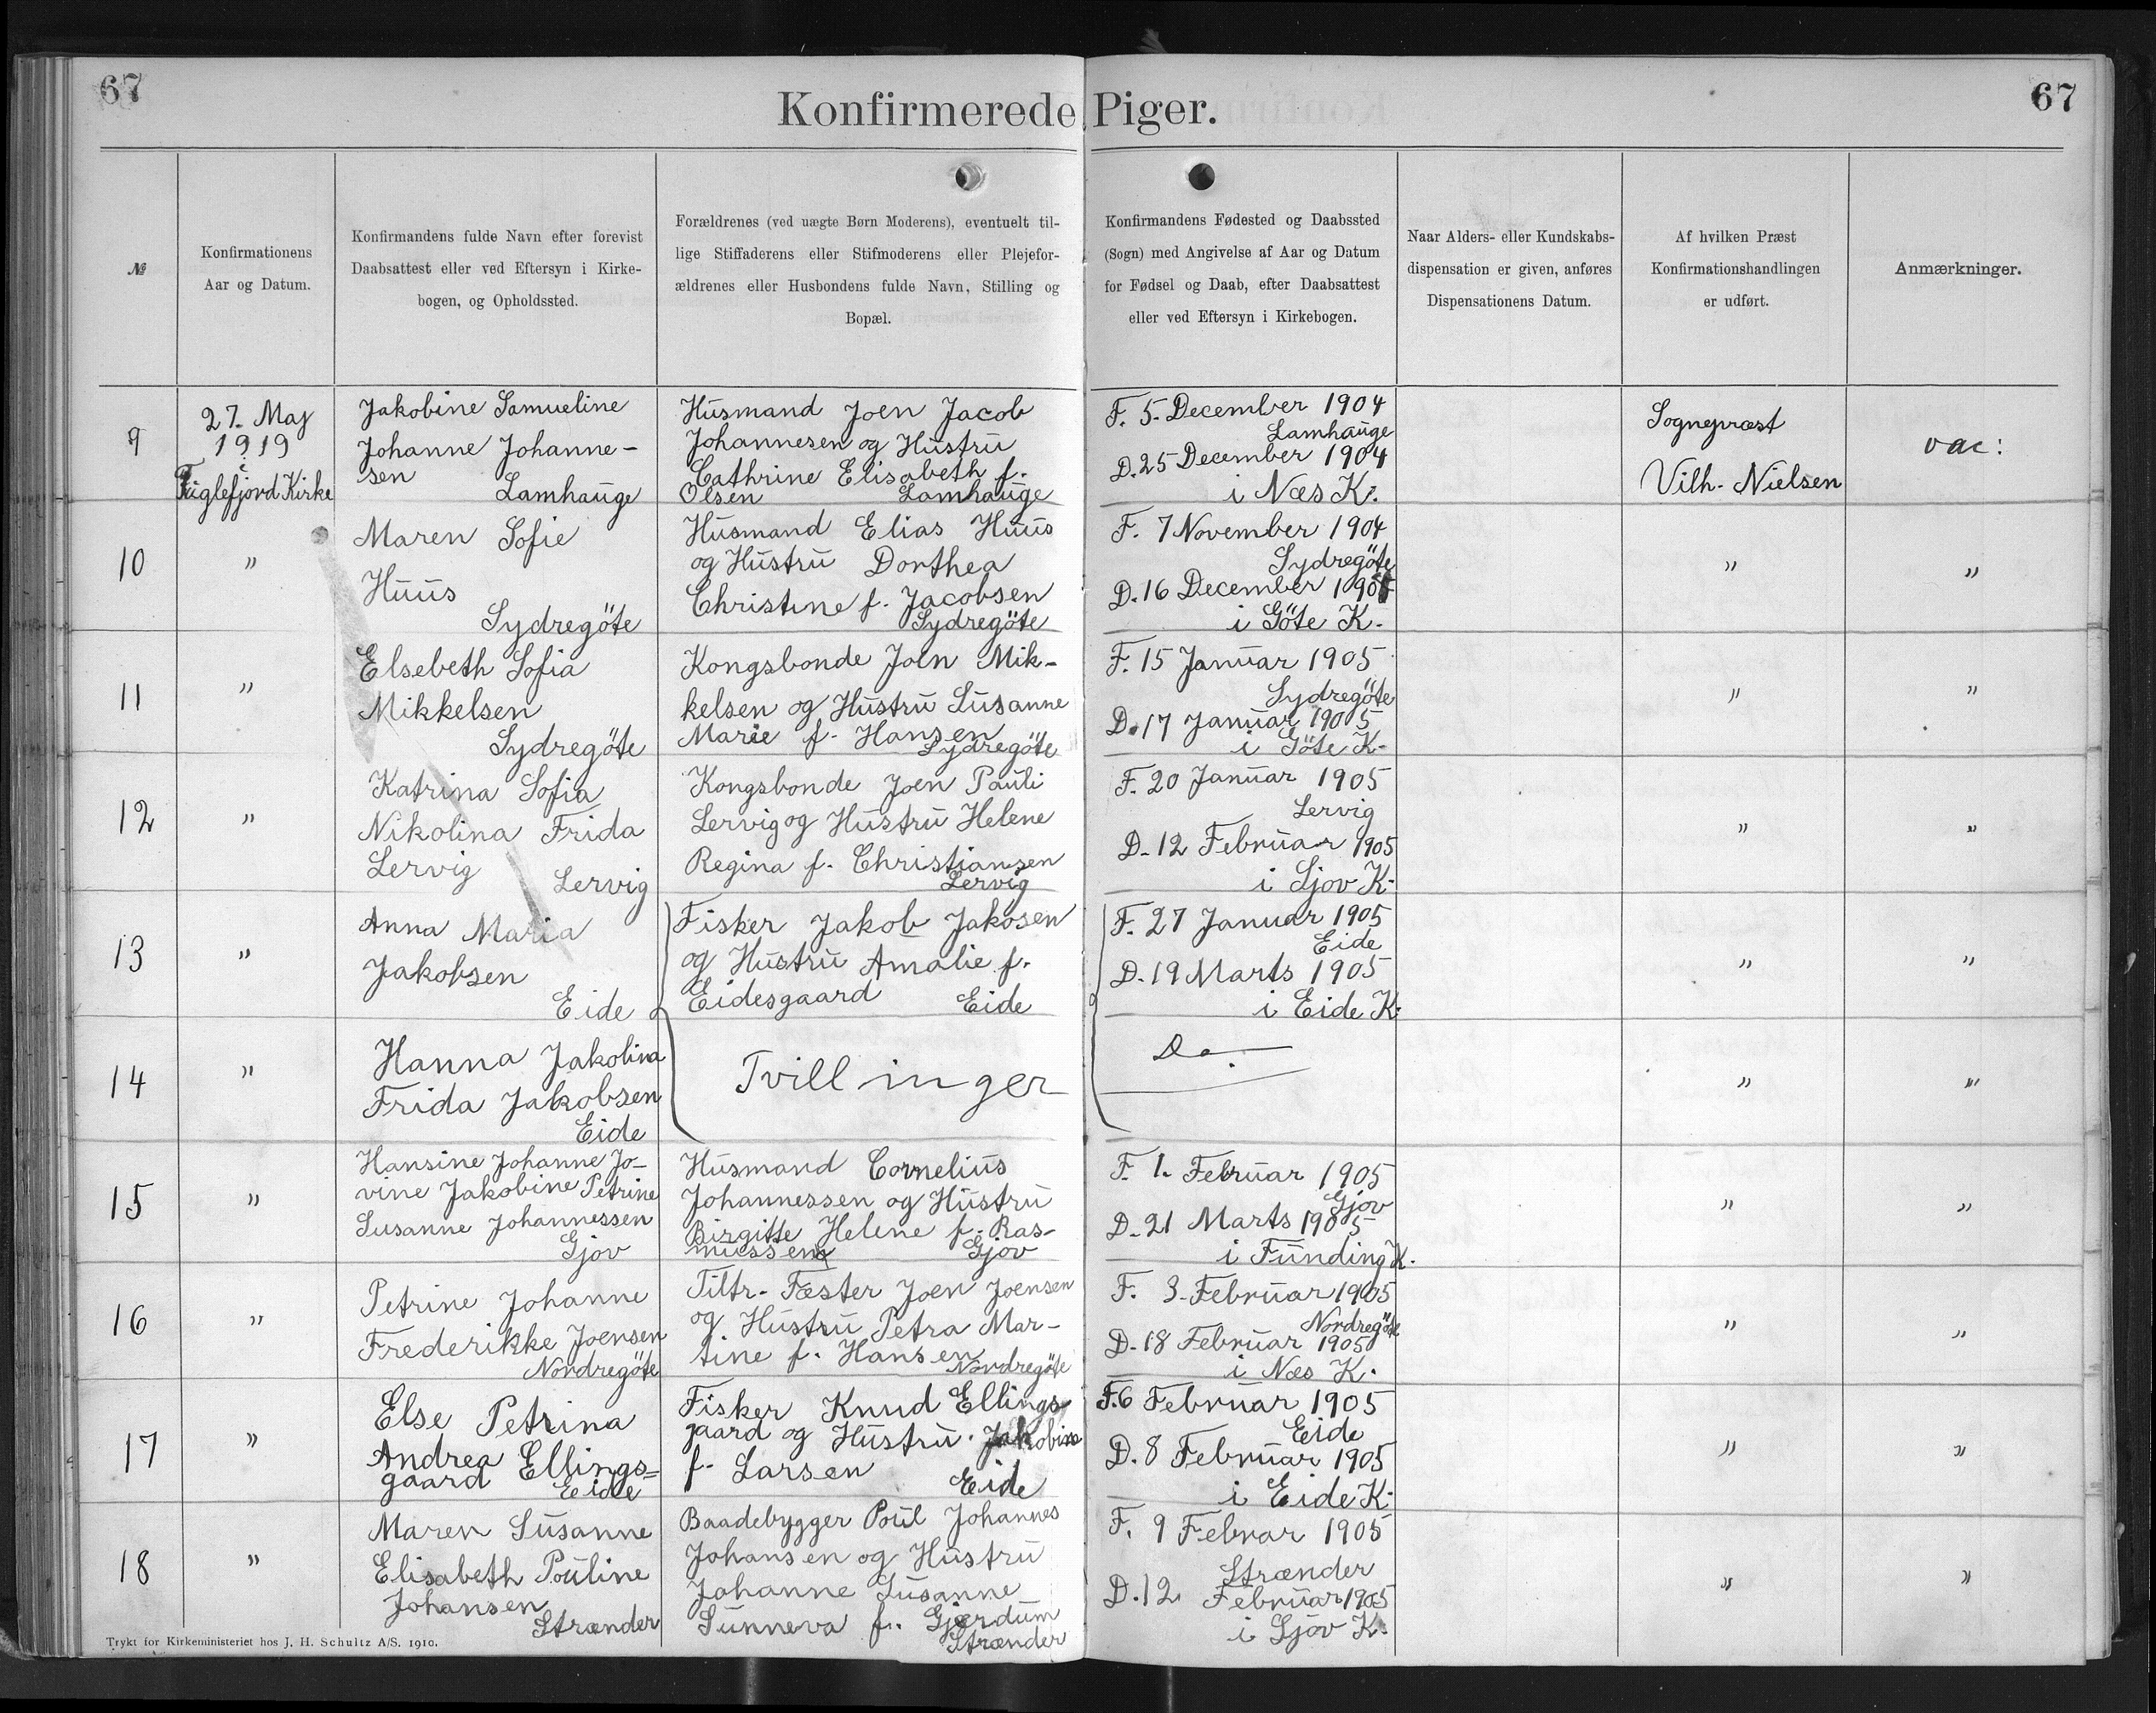 67
67
Konfirmerede Piger.
№
Konfirmationens
Aar og Datum.
Konfirmandens fulde Navn efter forevist
Daabsattest eller ved Eftersyn i Kirke-
bogen, og Opholdssted.
Forældrenes (ved uægte Børn Moderens), eventuelt til-
lige Stiffaderens eller Stifmoderens eller Plejefor-
ældrenes eller Husbondens fulde Navn, Stilling og
Bopæl.
Konfirmandens Fødested og Daabssted
(Sogn) med Angivelse af Aar og Datum
for Fødsel og Daab, efter Daabsattest
eller ved Eftersyn i Kirkebogen.
Naar Alders- eller Kundskabs-
dispensation er given, anføres
Dispensationens Datum.
Af hvilken Præst
Konfirmationshandlingen
er udført.
Anmærkninger.
9
27. Maj
1919
i
Fuglefjord Kirke
Jakobine Samueline
Johanne Johanne-
sen
Lamhauge
Husmand Joen Jacob
Johannesen og Hustru
Cathrine Elisabeth f.
Olsen Lamhauge
F. 5. December 1904
Lamhauge
D. 25 December 1904
i Næs K.
Sognepræst
Vilh. Nielsen
vac:
10
"
Maren Sofie
Huus
Sydregöte
Husmand Elias Huus
og Hustru Dorthea
Christine f. Jacobsen
Sydregöte
F. 7 November 1904
Sydregöte
D. 16 December
i Göte K.
"
"
11
"
Elsebeth Sofia
Mikkelsen
Sydregöte
Kongsbonde Joen Mik-
kelsen og Hustru Susanne
Marie f. Hansen
Sydregöte
F. 15 Januar 1905
Sydregöte
D. 17 Januar 1905
i Göte K.
"
"
12
"
Katrina Sofia
Nikolina Frida
Lervig
Lervig
Kongsbonde Joen Pauli
Lervig og Hustru Helene
Regina f. Christiansen
Lervig
F. 20 Januar 1905
Lervig
D. 12 Februar 1905
i Sjov K.
"
"
13
"
Anna Maria
Jakobsen
Eide
Fisker Jakob Jakosen
og Hustru Amalie f.
Eidesgaard Eide
F. 27 Januar 1905
Eide
D. 19 Marts 1905
i Eide K.
"
"
14
"
Hanna Jakolina
Frida Jakobsen
Eide
Tvillinger
Do.
"
"
15
"
Hansine Johanne Jo-
vine Jakobine Petrine
Susanne Johannessen
Gjov
Husmand Cornelius
Johannessen og Hustru
Birgitte Helene f. Ras-
mussen Gjov
F. 1. Februar 1905
Gjov
D. 21 Marts 1905
i Funding K.
"
"
16
"
Petrine Johanne
Frederikke Joensen
Nordregöte
Tiltr. Fæster Joen Joensen
og Hustru Petra Mar-
tine f. Hansen
Nordregöte
F. 3. Februar 1905
Nordregöte
D. 18 Februar 1905
i Næs K.
"
"
17
"
Else Petrina
Andrea Ellings=
gaard Eide
Fisker Knud Ellings-
gaard og Hustru Jakobine
f. Larsen Eide
F. 6 Februar 1905
Eide
D. 8 Februar 1905
i Eide K.
"
"
18
"
Maren Susanne
Elisabeth Pouline
Johansen
Strænder
Baadebygger Poul Johannes
Johansen og Hustru
Johanne Susanne
Sunneva f. Gjærdum
Strænder
F. 9 Febrar 1905
Strænder
D. 12 Februar 1905
i Sjov K.
"
"
Trykt for Kirkeministeriet hos J. H. Schultz A/S. 1910.